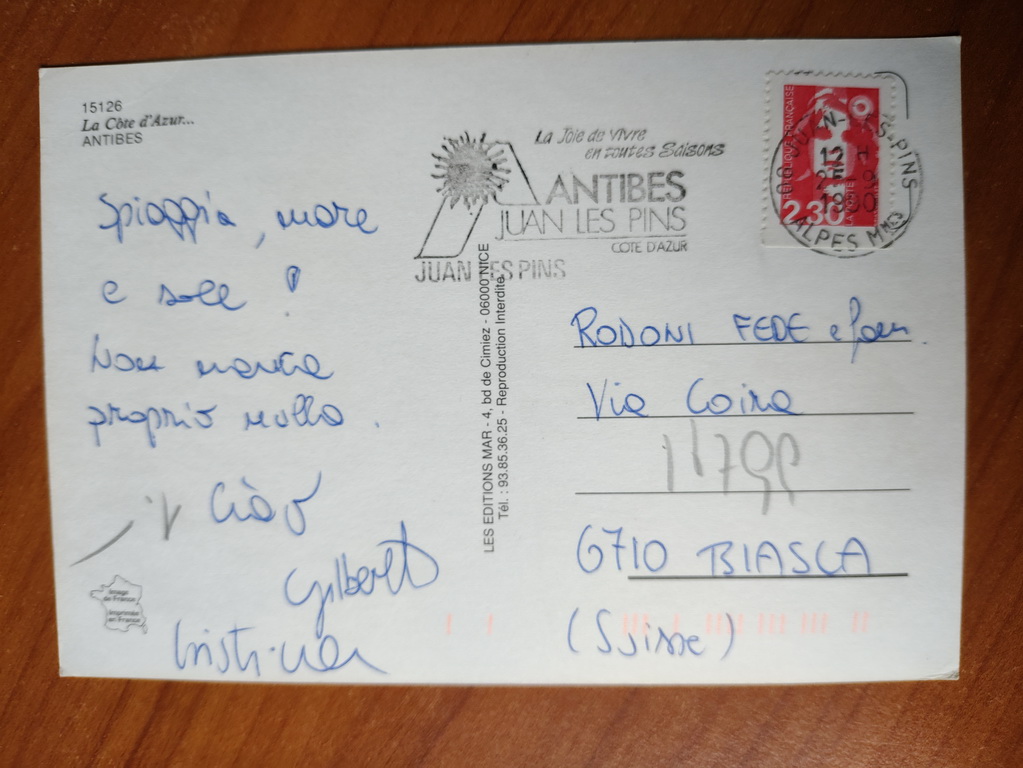 15126
La Côte d'Azur...
ANTIBES
Spiaggia, mare
e sole !
Non manca
proprio nulla.
Ciao
Gilberto
Cristina
Image
de France
Imprimée
en France
LES EDITIONS MAR - 4, bd de Cimiez - 06000 NICE
Tél. : 93.85.36.25 - Reproduction Interdite
La Joie de Vivre
en toutes Saisons
ANTIBES
JUAN LES PINS
COTE D'AZUR
JUAN LES PINS
REPUBLIQUE FRANÇAISE
2,30
LA POSTE
1990
ALPES MMES
RODONI FEDE e fam.
Via Coira
6710 BIASCA
(Svizze)